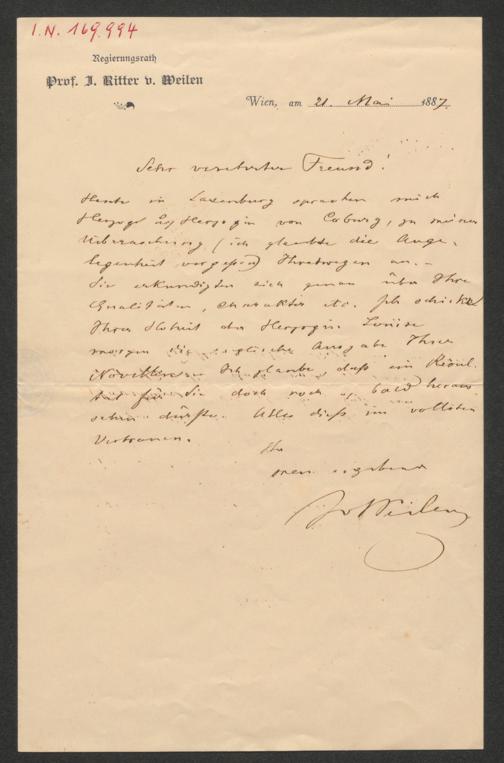 I.N. 169.994
Regierungsrath
Prof. J. Ritter v. Weilen
Wien, am 21. Mai 1887.
Sehr verehrter Freund!
Heute in Laxenburg sprachen mich
Herzog u Herzogin von Coburg, zu meiner
Ueberraschung (ich glaubte die Ange-
legenheit vergessen) Ihretwegen an. –
Sie erkundigten sich genau über Ihre
Qualitäten, Charakter etc. Ich schicke
Ihrer Hoheit der Herzogin Louise
morgen die englische Ausgabe Ihrer
Novellen. Ich glaube, daß ein Resul-
tat für Sie doch noch bald heraus
sehen dürfte. Alles dieß im vollsten
Vertrauen.
Ihr
treu ergebener
JvWeilen